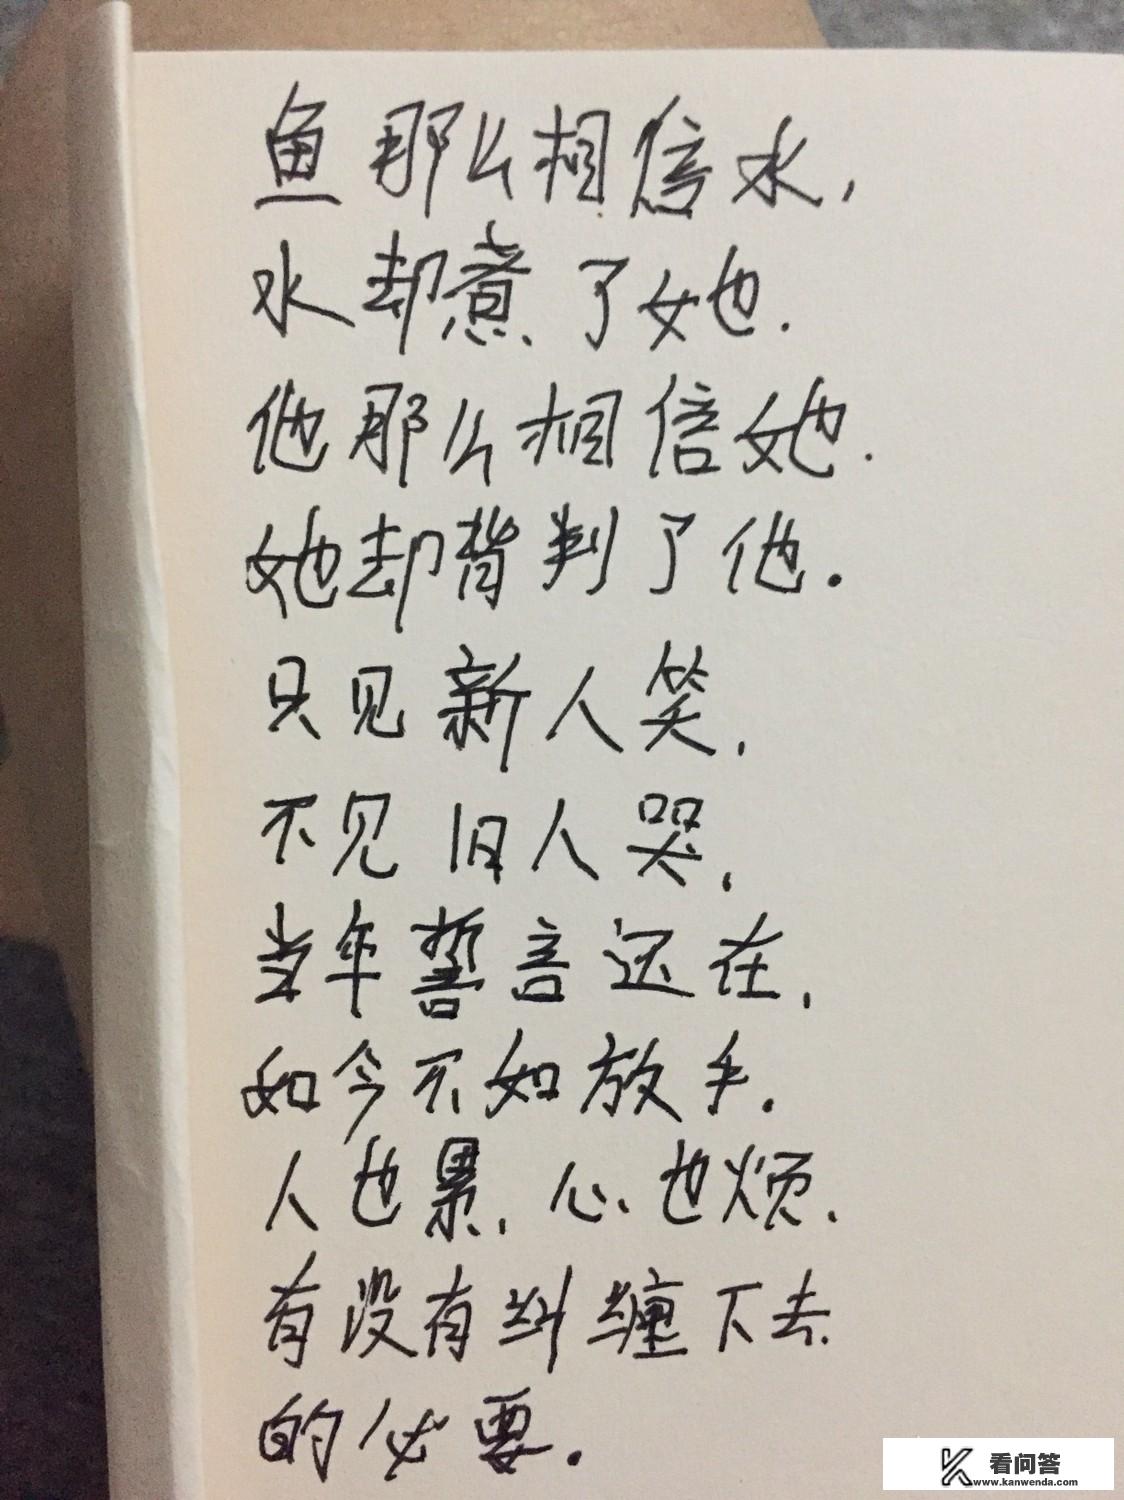 鱼那么相信水，
水却煮了她.
他那么相信她.
她却背判了他.
只见新人笑，
不见旧人哭，
当年誓言还在，
如今不如放手.
人也累，心也烦.
有没有纠缠下去
的必要.
看问答
www.kanwenda.com